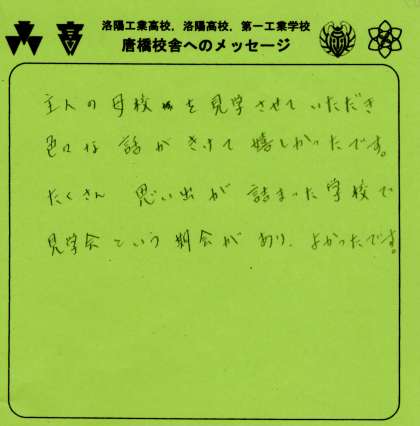 洛陽工業高校，洛陽高校，第一工業学校
唐橋校舎へのメッセージ
主人の母校を見学させていただき
色々な話がきけて嬉しかったです。
たくさん 思い出が 詰まった学校で
見学会という機会があり、よかったです。